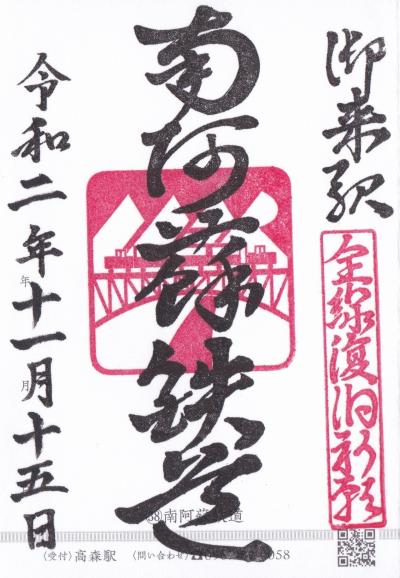 御来駅
全線復旧祈願
南阿蘇鉄道
令和二年十一月十五日
年
月
南阿蘇鉄道
(受付) 高森駅 (問い合わせ)